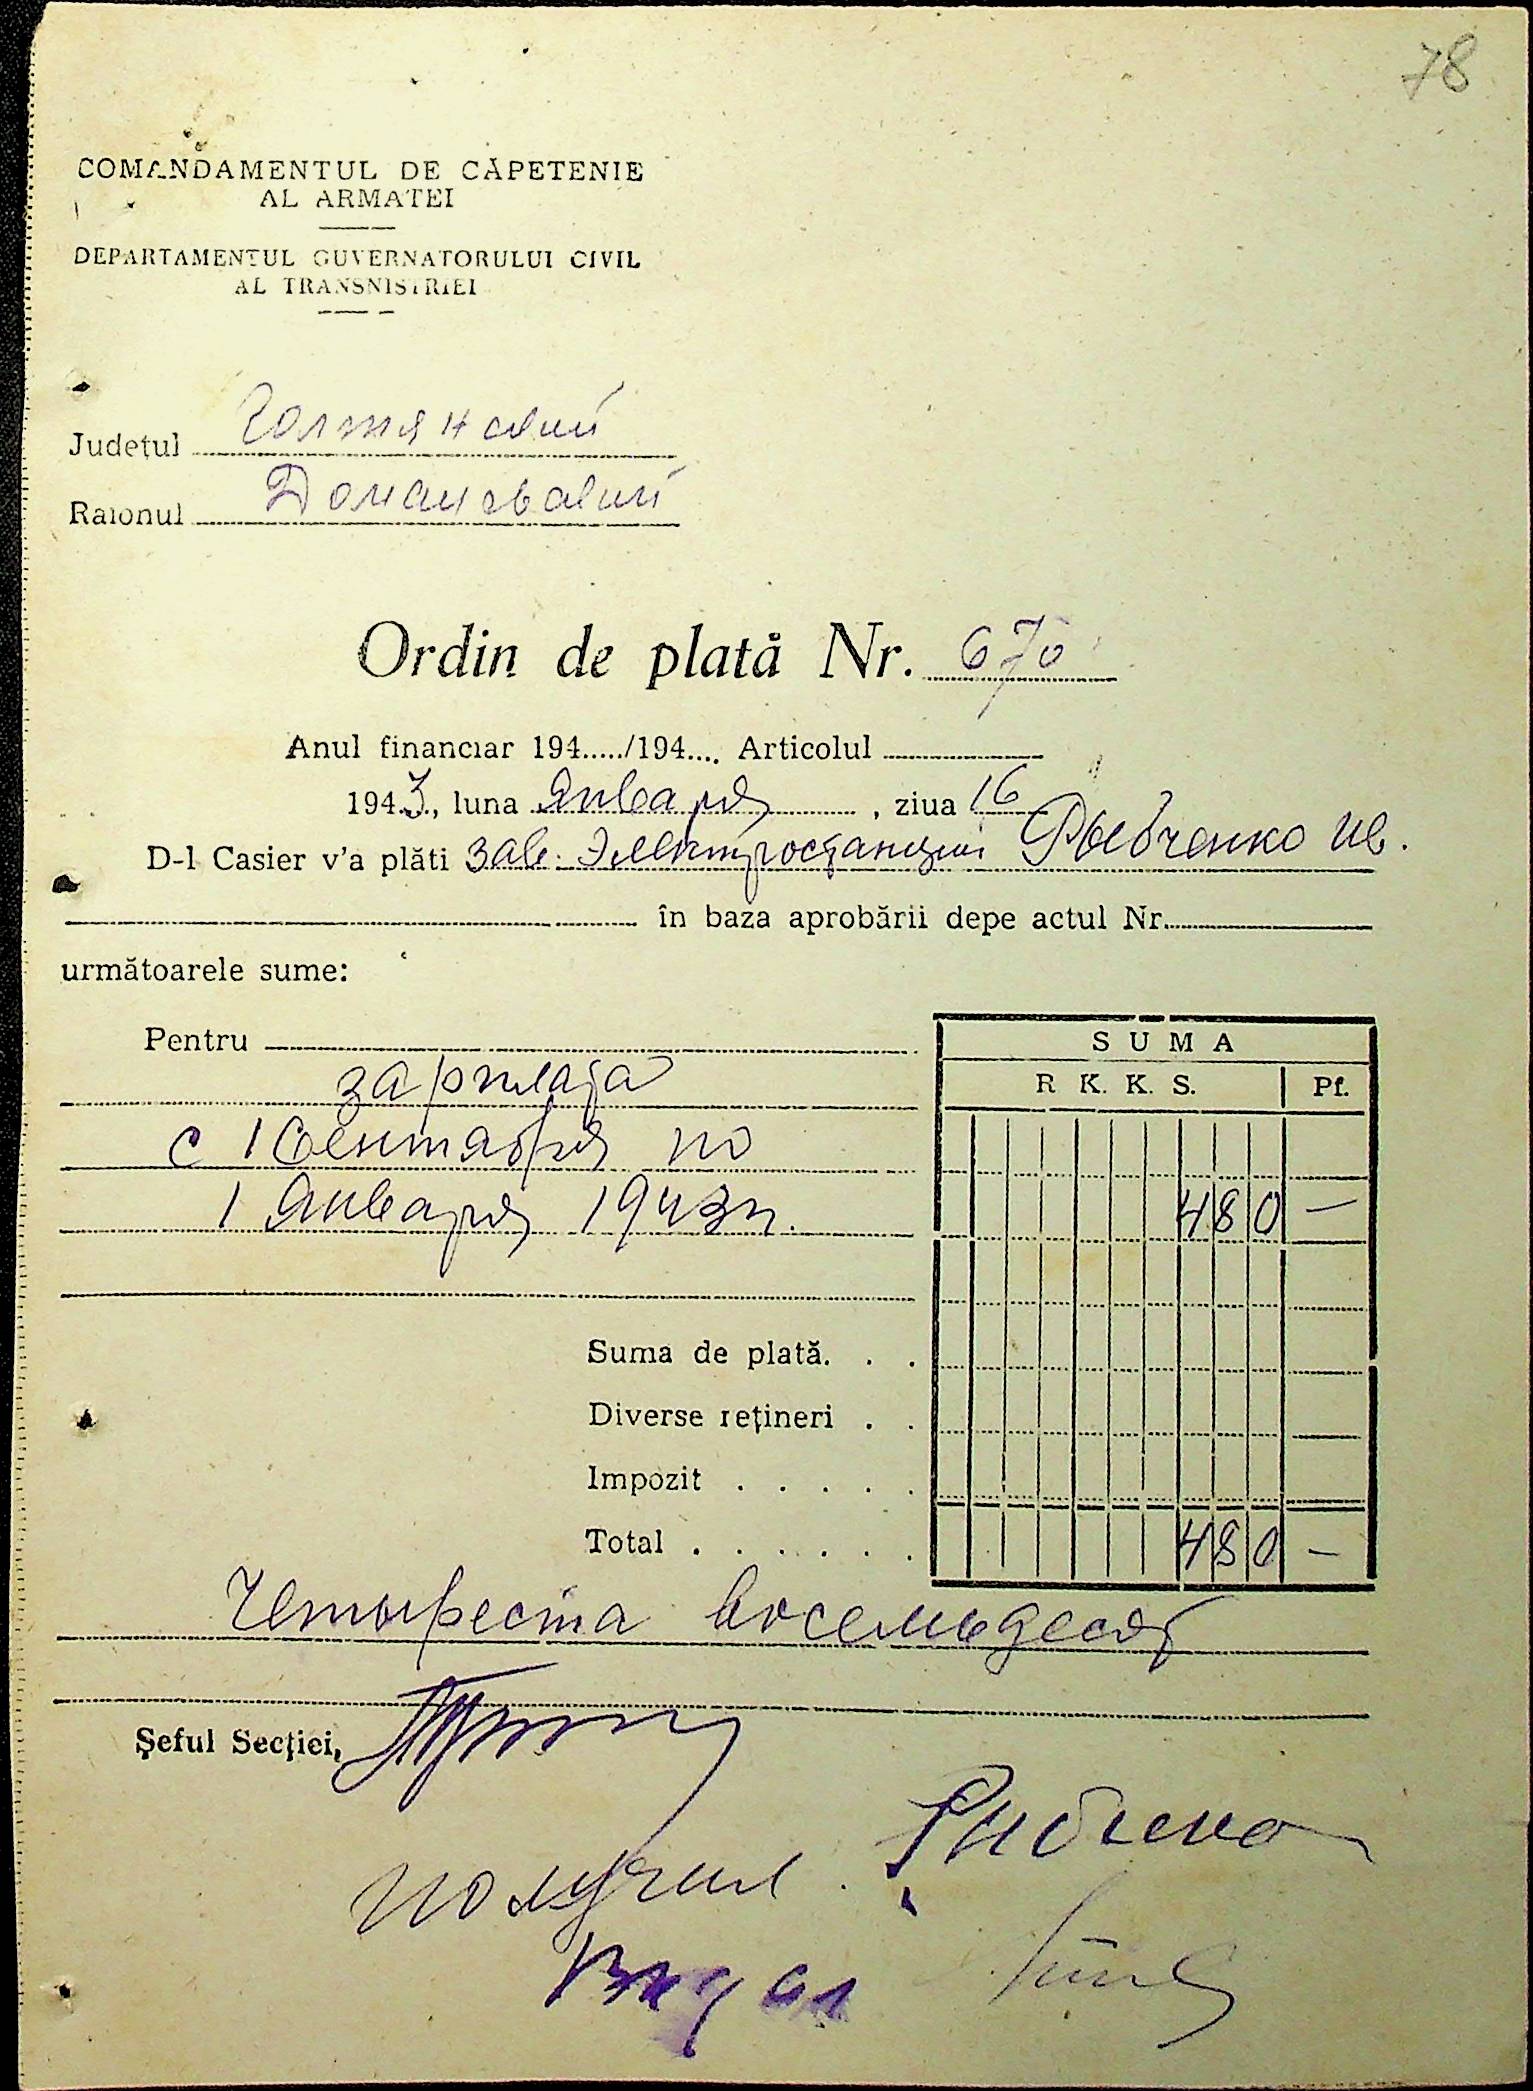 78
COMANDAMENTUL DE CĂPETENIE
AL ARMATEI
DEPARTAMENTUL GUVERNATORULUI CIVIL
AL TRANSNISTRIEI
Județul Голтянский
Raionul Доманевский
Ordin de plată Nr. 670
Anul financiar 194...../194.... Articolul
1943, luna Января, ziua 16
D-l Casier v'a plăti зав. Электростанции Рыбченко Ив.
în baza aprobării depe actul Nr.
următoarele sume:
Pentru
SUMA
R K. K. S. Pf.
зарплата
с 1 Сентября по
1 Января 1943 г. 480 —
Suma de plată. . .
Diverse rețineri . .
Impozit . . . . .
Total . . . . . . 480 —
Четыреста восемьдесят
Șeful Secției,
получил